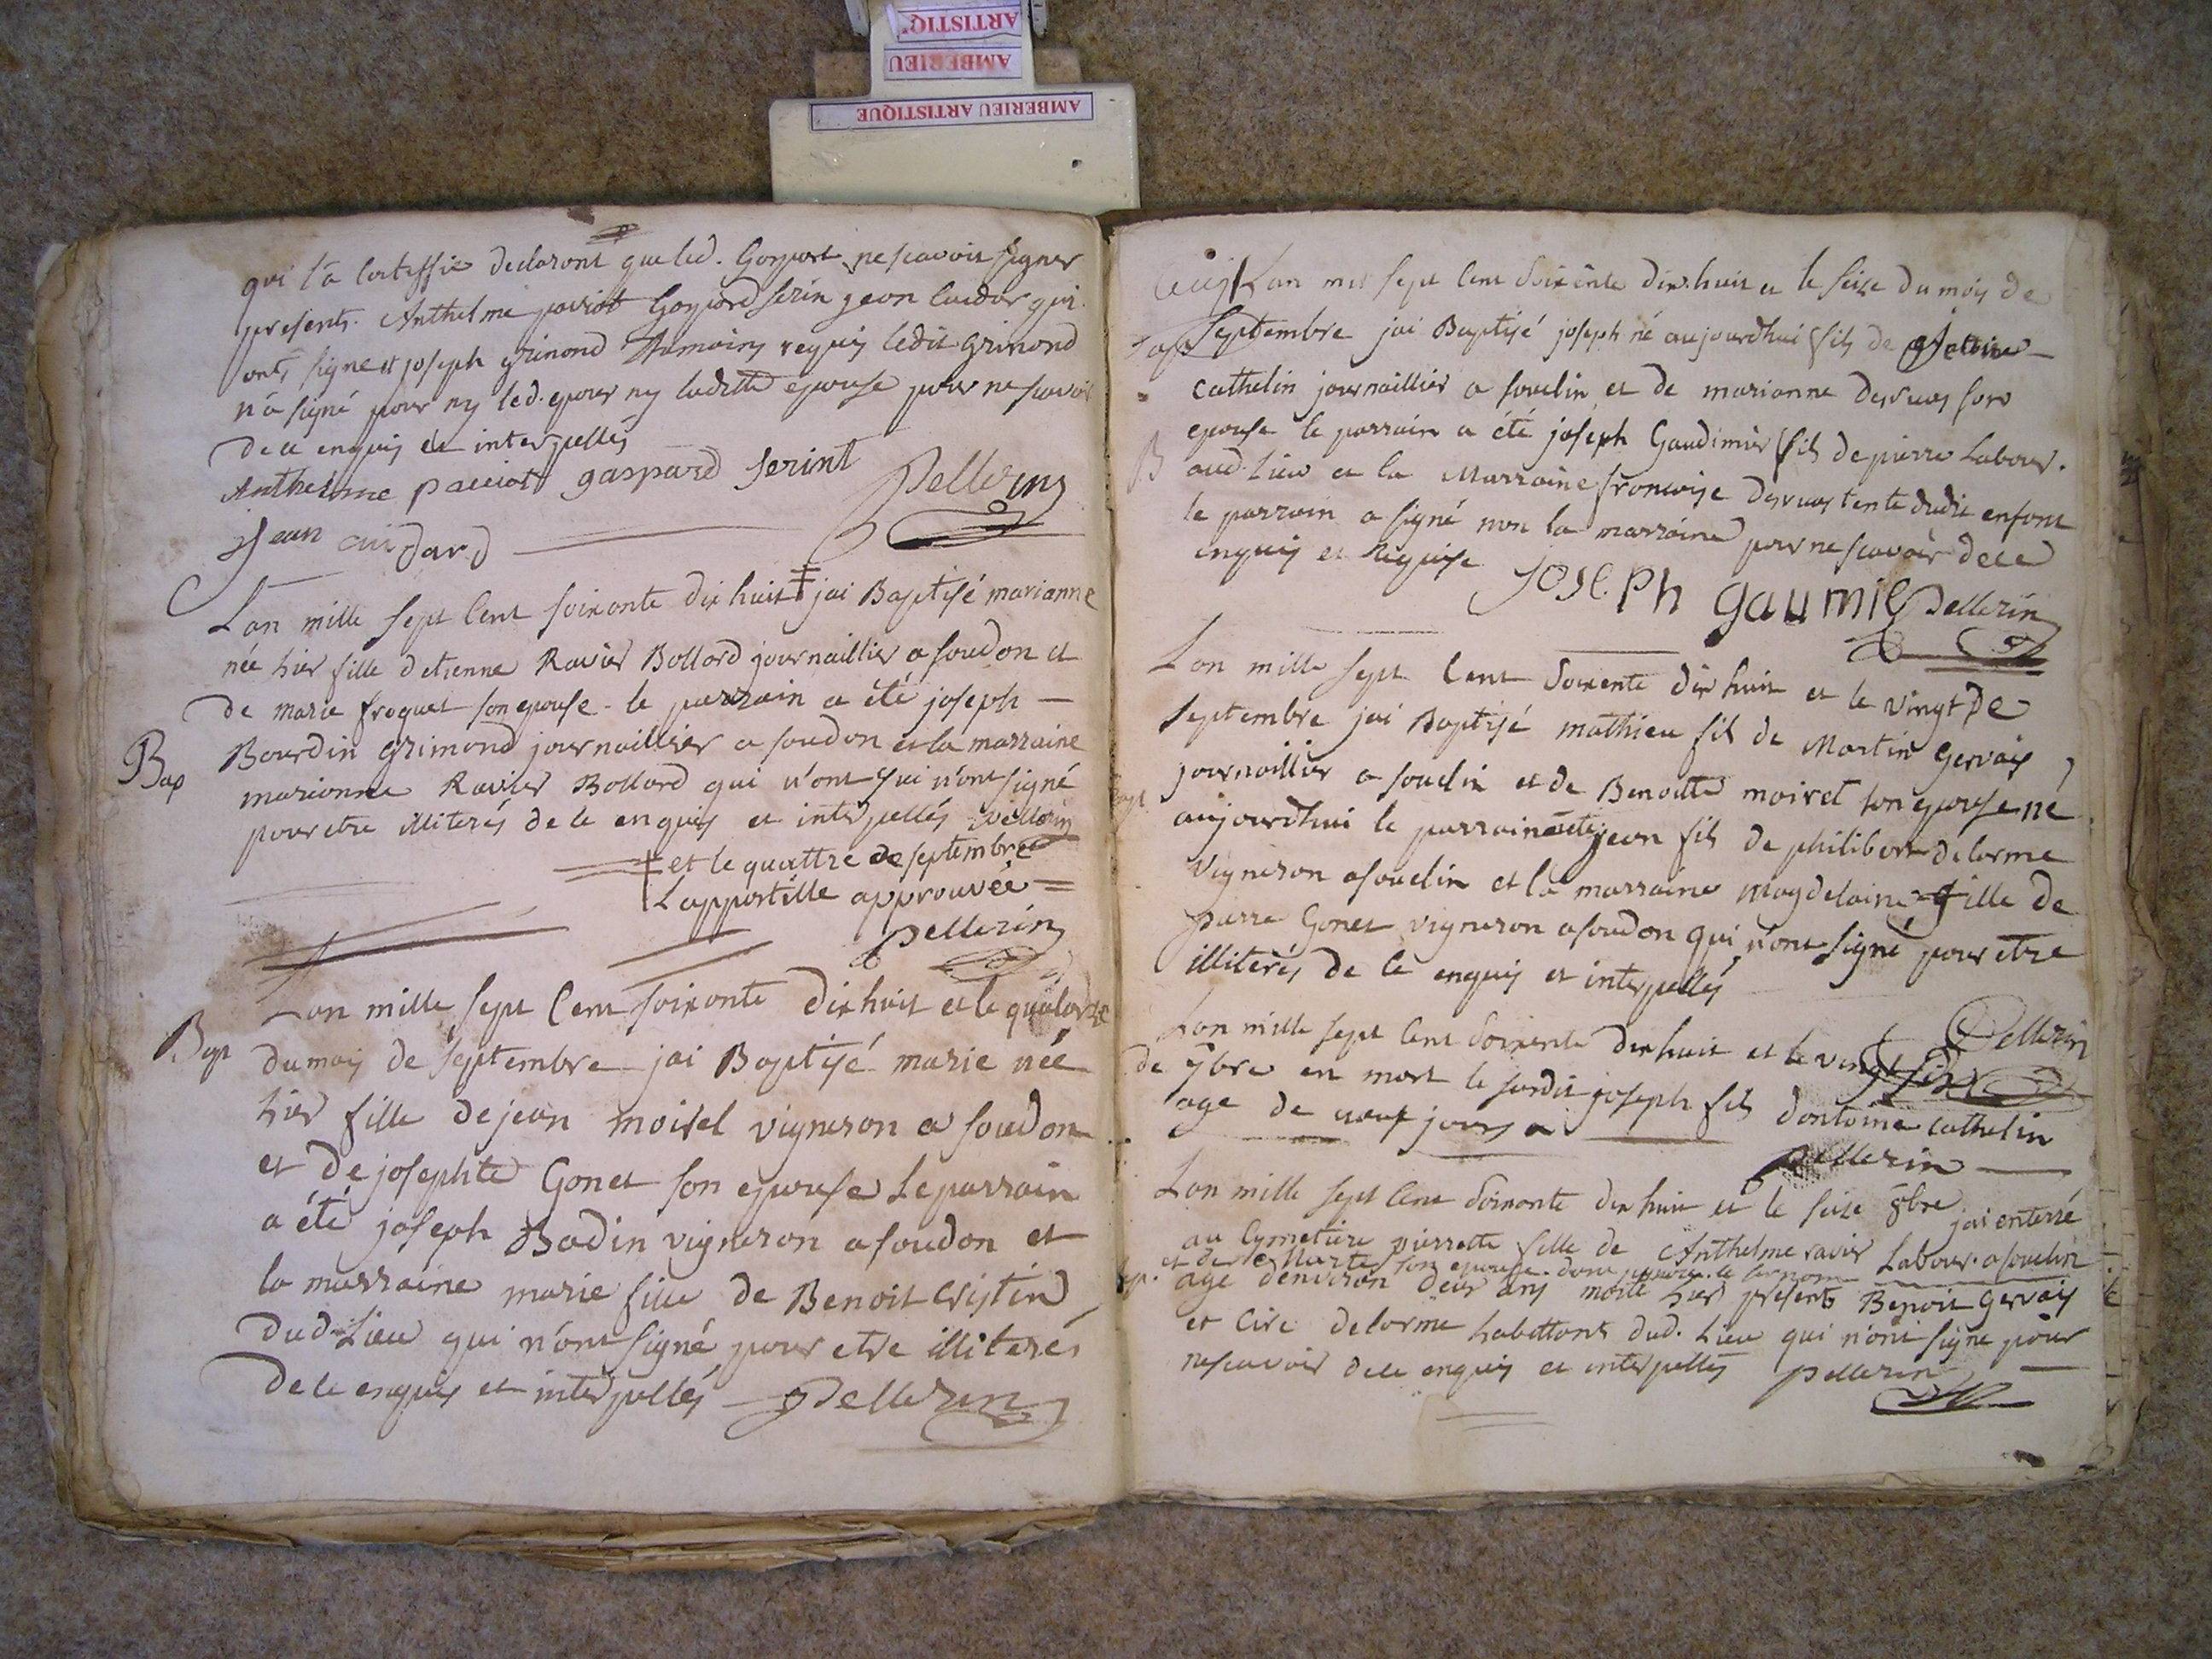 ARTISTIQ
AMBERIEU
AMBERIEU ARTISTIQUE
qui l'a certiffié declarant que led. Gaspart ne scavoir signer
presents. Anthelme paviot Gaspard serin jean cuidar qui
ont signe et joseph grimond temoins requis ledit grimond
n'a signé pour ny led. epoux ny laditte epouse pour ne scavoir
de ce enquis et interpellés
Anthelme paviot gaspard serint Pellerin
jean cuidard
L'an mille sept cent soixante dix huit ‡ jai Baptisé marianne
née hier fille d'etienne Ravier Bollard journaillier a soudon et
de marie froquet son epouse - le parrain a été joseph
Bap Bourdin grimond journaillier a soudon et la marraine
marianne Ravier Bollard qui n'ont qui n'ont signé
pour etre illiterés de ce enquis et interpellés pellerin
‡ et le quattre de septembre
L'appostille approuvée =
pellerin
Bap L'an mille sept cent soixante dix huit et le quatorze
du mois de septembre jai Baptisé marie née
hier fille de jean moiret vigneron a soudon
et de josephte Gonet son epouse Le parrain
a été joseph Badin vigneron a soudon et
la marraine marie fille de Benoit Cristin
dud. Lieu qui n'ont signé pour etre illiterés
de ce enquis et interpellés Pellerin
L'an mil sept cent soixente dix huit et le seize du mois de
Bap septembre jai Baptisé joseph né aujourdhui fils de
cathelin journaillier a souclin et de marianne desvas son
epouse le parrain a été joseph Gaudimier fils de pierre Labour.
aud. Lieu et la Marraine francoise desvas tente dudit enfant
le parrain a signé non la marraine pour ne scavoir de ce
enquis et Requise
JOSEPh gaumie Pellerin
L'an mille sept cent soixente dix huit et le vingt de
septembre jai Baptisé mathieu fils de Martin Gervais
journaillier a souclin et de Benoitte moiret son epouse né
aujourdhui le parrain a été jean fils de philibert delorme
vigneron a souclin et la marraine Magdelaine fille de
pierre Gonet vigneron a soudon qui n'ont signé pour etre
illiterés de ce enquis et interpellés
Pellerin
L'an mille sept cent soixente dix huit et le vingt six
de 7bre en mort le susdit joseph fils d'antoine cathelin
age de neuf jours
pellerin
L'an mille sept cent soixante dix huit et le seize 8bre jai enterré
au cymetiere pierrette fille de Anthelme ravier Labour. a souclin
et de Marte son epouse
age d'environ deux ans morte hier presents Benoit Gervais
et Cire delorme habittants dud. Lieu qui n'ont signe pour
ne scavoir de ce enquis et interpellés pellerin